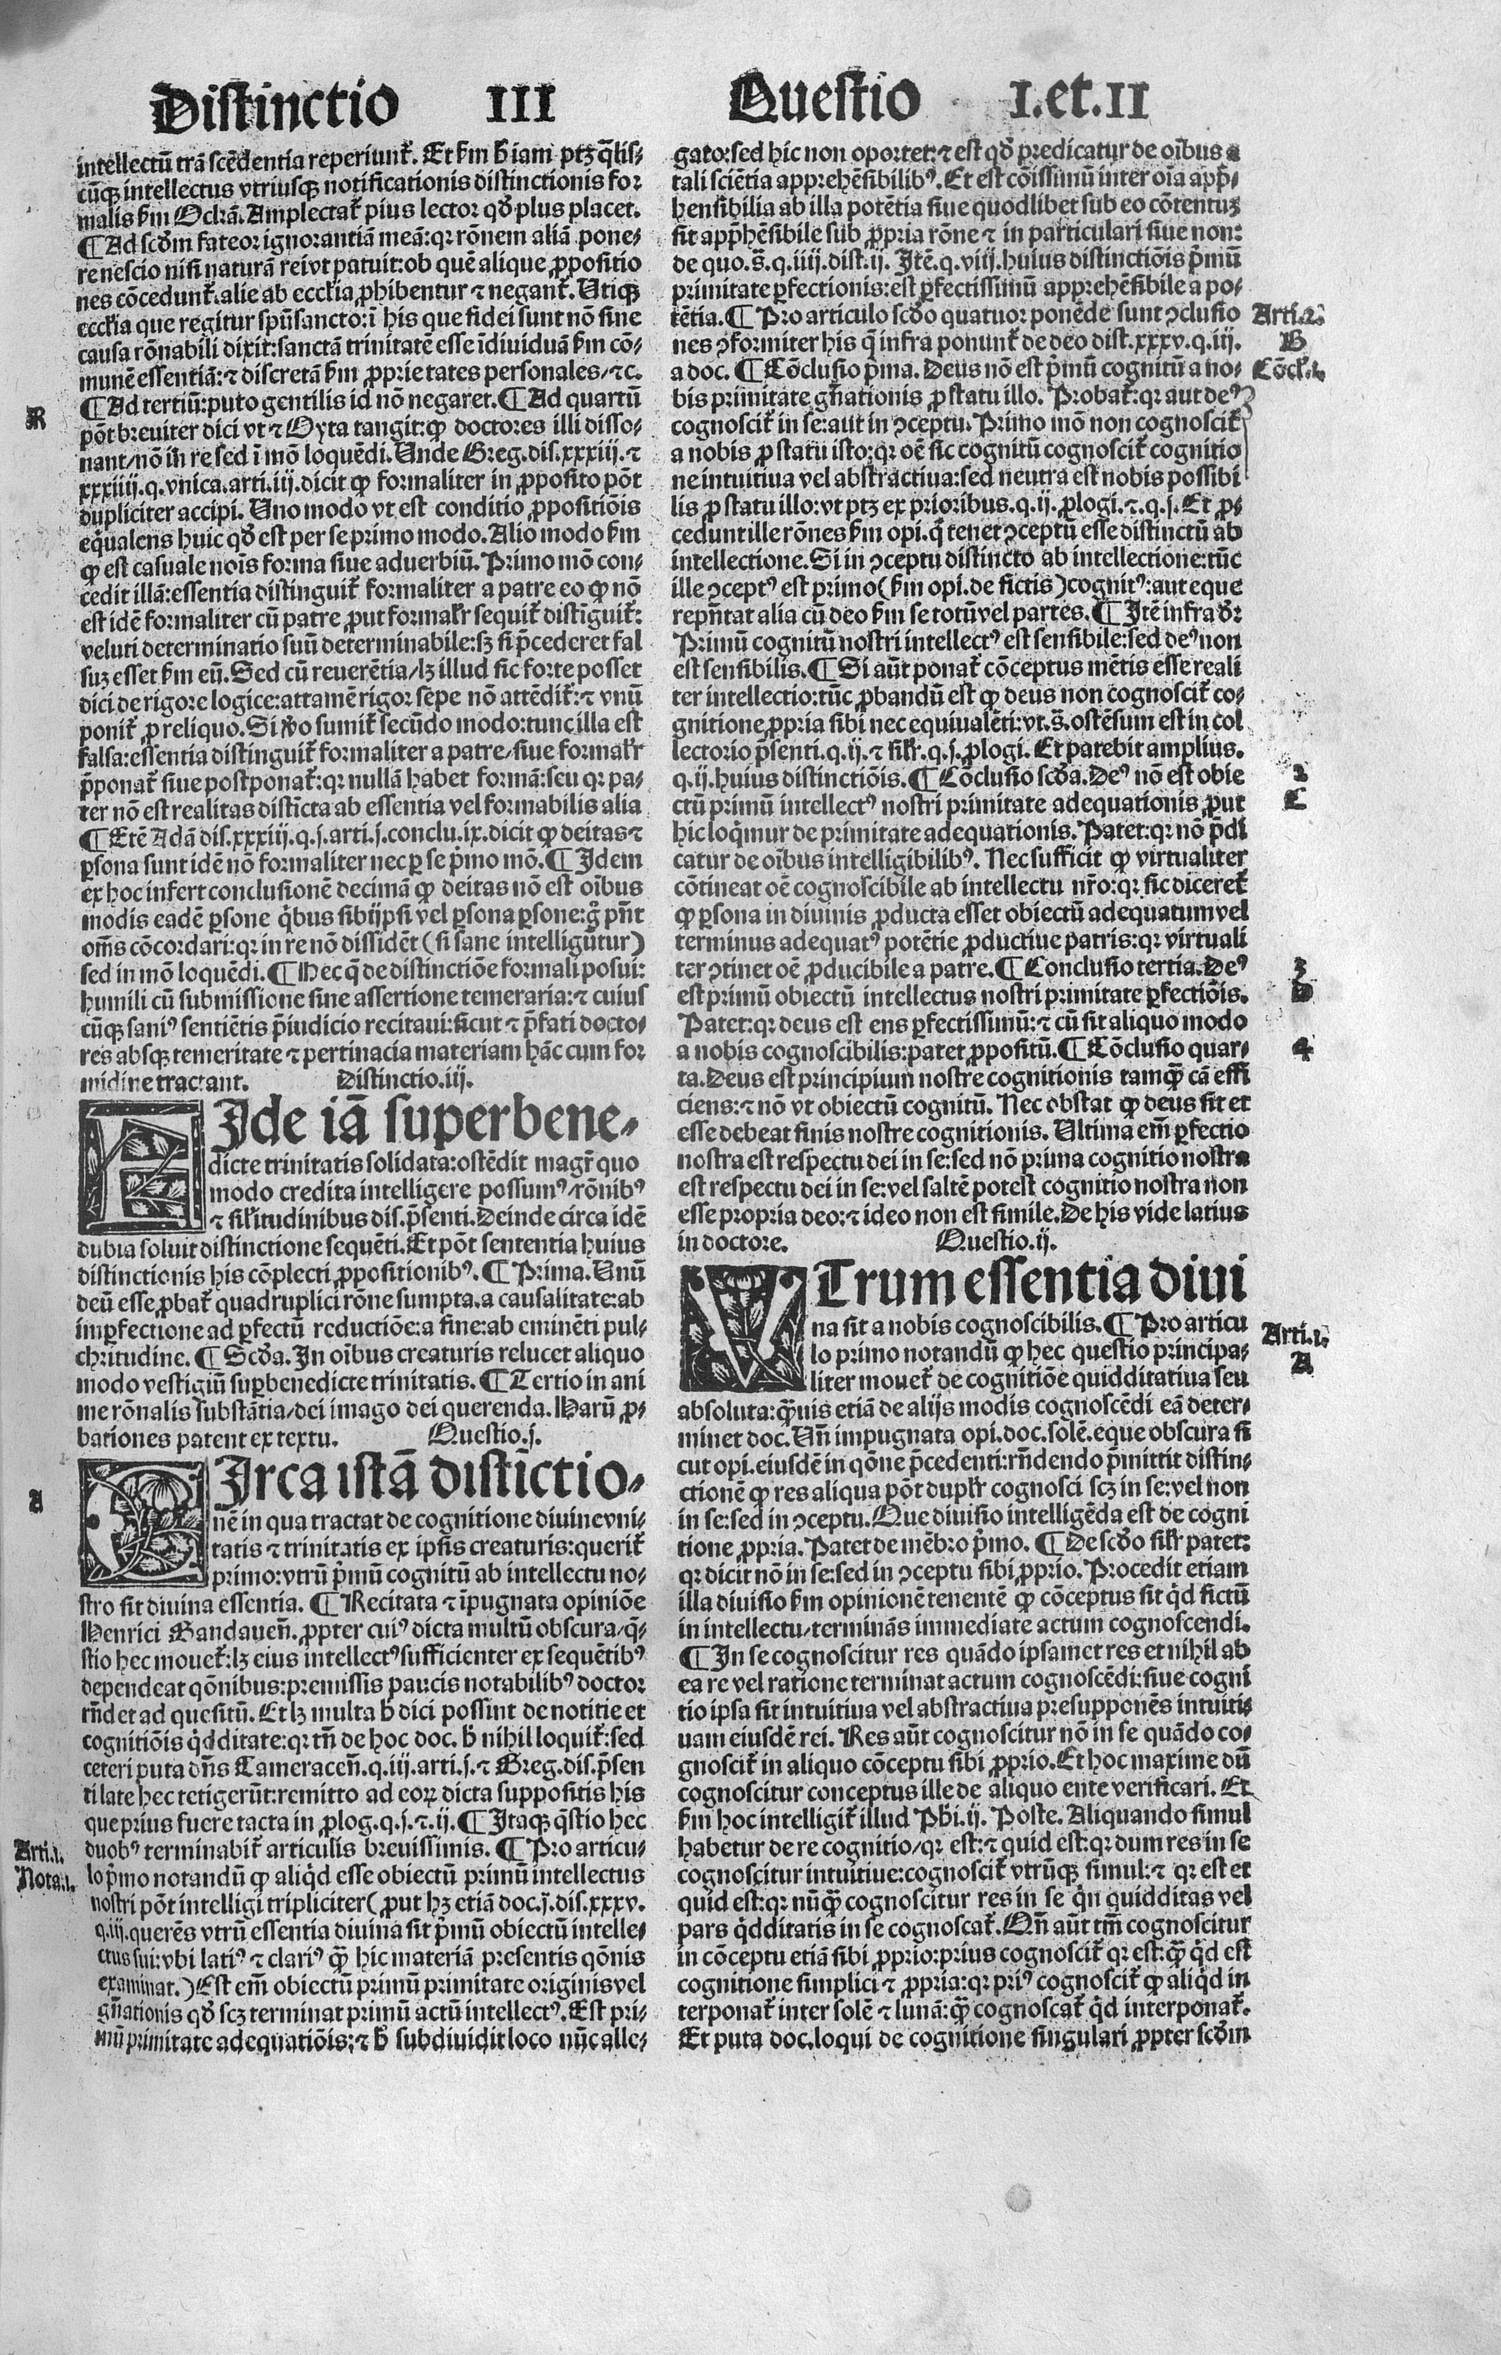 Distinctio III
Questio I.et.II
intellectũ trãscẽdentia reperiunt̃. Et ẜm ɦ iam ptꝫ q̃lis-
cũqꝫ intellectus vtriusqꝫ notificationis distinctionis for
malis ẜm Ockã. Amplectat̃ pius lector qđ plus placet.
¶ Ad scđm fateor ignorantiã meã: qꝛ rõnem aliã pone-
re nescio nisi naturã rei vt patuit: ob quẽ alique ꝓpositio
nes cõcedunt̃. alie ab eccl̃ia ꝓhibentur ⁊ negant̃. Utiqꝫ
eccl̃ia que regitur spũsancto: ĩ his que fidei sunt nõ sine
causa rõnabili dixit: sanctã trinitatẽ esse ĩdiuiduã ẜm cõ-
munẽ essentiã: ⁊ discretã ẜm ꝓprietates personales, ⁊c.
¶ Ad tertiũ: puto gentilis id nõ negaret. ¶ Ad quartũ
R
põt breuiter dici vt ⁊ Oxta tangit: ꝙ doctores illi disso-
nant, nõ iñ re sed ĩ mõ loquẽdi. Unde Greg. dis. xxxiij. ⁊
xxxiiij. q. vnica. arti. iij. dicit ꝙ formaliter in ꝓposito põt
dupliciter accipi. Uno modo vt est conditio ꝓpositiõis
eq̃ualens huic qđ est per se primo modo. Alio modo ẜm
ꝙ est casuale nois̃ forma siue aduerbiũ. Primo mõ con-
cedit illã: essentia distinguit̃ formaliter a patre eo ꝙ nõ
est idẽ formaliter cũ patre ꝓut formalr̃ sequit̃ distĩguit̃:
veluti determinatio suũ determinabile: sꝫ si p̃cederet fal
suꝫ esset ẜm eũ. Sed cũ reuerẽtia, lꝫ illud sic forte posset
dici de rigore logice: attamẽ rigor sepe nõ attẽdit̃: ⁊ vnũ
ponit̃ ꝓ reliquo. Si ꝟo sumit̃ secũdo modo: tunc illa est
falsa: essentia distinguit̃ formaliter a patre, siue formalr̃
p̃ponat̃ siue postponat̃: qꝛ nullã habet formã: seu qꝛ pa-
ter nõ est realitas distĩcta ab essentia vel formabilis alia
¶ Etẽ Adã dis. xxxiij. q. j. arti. j. conclu. ix. dicit ꝙ deitas ⁊
ꝑsona sunt idẽ nõ formaliter nec ꝑ se p̃mo mõ. ¶ Idem
ex hoc infert conclusionẽ decimã ꝙ deitas nõ est oĩbus
modis eadẽ ꝑsone q̃bus sibijpsi vel ꝑsona ꝑsone: g̃ pñt
om̃s cõcordari: qꝛ in re nõ dissidẽt (si sane intelligũtur)
sed in mõ loquẽdi. ¶ Hec q̃ de distinctiõe formali posui:
humili cũ submissione sine assertione temeraria: ⁊ cuius
cũqꝫ saniꝰ sentiẽtis p̃iudicio recitaui: sicut ⁊ p̃fati docto-
res absqꝫ temeritate ⁊ pertinacia materiam hãc cum for
midine tractant. Distinctio. iij.
FIde iã superbene-
dicte trinitatis solidata: ostẽdit magr̃ quo
modo credita intelligere possumꝰ, rõnibꝰ
⁊ sil̃itudinibus dis. p̃senti. Deinde circa idẽ
dubia soluit distinctione sequẽti. Et põt sententia huius
distinctionis his cõplecti ꝓpositionibꝰ. ¶ Prima. Unũ
deũ esse ꝓbat̃ quadruplici rõne sumpta. a causalitate: ab
imꝑfectione ad ꝑfectũ reductiõe: a fine: ab eminẽti pul-
chritudine. ¶ Scđa. In oĩbus creaturis relucet aliquo
modo vestigiũ suꝑbenedicte trinitatis. ¶ Tertio in ani
me rõnalis substãtia, dei imago dei querenda. Harũ ꝓ-
bationes patent ex textu. Questio. j.
A
CIrca istã distĩctio-
nẽ in qua tractat de cognitione diuine vni-
tatis ⁊ trinitatis ex ipsis creaturis: querit̃
primo: vtrũ p̃mũ cognitũ ab intellectu no-
stro sit diuina essentia. ¶ Recitata ⁊ ĩpugnata opiniõe
Henrici Gandaueñ. ꝓpter cuiꝰ dicta multũ obscura, q̃-
stio hec mouet̃: lꝫ eius intellectꝰ sufficienter ex sequẽtibꝰ
dependeat qõnibus: premissis paucis notabilibꝰ doctor
rñdet ad quesitũ. Et lꝫ multa ɦ dici possint de notitie et
cognitiõis q̃dditate: qꝛ tñ de hoc doc. ɦ nihil loquit̃: sed
ceteri puta dñs Cameraceñ. q. iij. arti. j. ⁊ Greg. dis. p̃sen
ti late hec tetigerũt: remitto ad eoꝝ dicta suppositis his
que prius fuere tacta in ꝓlog. q. j. ⁊. ij. ¶ Itaqꝫ q̃stio hec
Arti. 1.
duobꝰ terminabit̃ articulis breuissimis. ¶ Pro articu-
Nota. 1.
lo p̃mo notandũ ꝙ aliq̃d esse obiectũ primũ intellectus
nostri põt intelligi tripliciter (ꝓut hꝫ etiã doc. j. dis. xxxv.
q. iij. querẽs vtrũ essentia diuina sit p̃mũ obiectũ intelle-
ctus sui: vbi latiꝰ ⁊ clariꝰ q̃ꝫ hic materiã presentis qõnis
examinat.) Est em̃ obiectũ primũ primitate originis vel
gñationis qđ scꝫ terminat primũ actũ intellectꝰ. Est pri-
mũ primitate adequatiõis: ⁊ ɦ subdiuidit loco nũc alle-
gato: sed hic non oportet: ⁊ est qđ predicatur de oĩbus a
tali sciẽtia apprehẽsibilibꝰ. Et est cõissimũ inter oĩa app̃-
hensibilia ab illa potẽtia siue quodlibet sub eo cõtentuꝫ
sit app̃hẽsibile sub ꝓpria rõne ⁊ in particulari siue non:
de quo. s̃. q. iiij. dist. ij. Itẽ. q. viij. huius distinctiõis p̃mũ
primitate ꝑfectionis: est ꝑfectissimũ apprehẽsibile a po-
tẽtia. ¶ Pro articulo scđo quatuor ponẽde sunt ꝯclusio
Arti. 2.
nes ꝯformiter his q̃ infra ponunt̃ de deo dist. xxxv. q. iij.
B
a doc. ¶ Cõclusio p̃ma. Deus nõ est p̃mũ cognitũ a no-
Cõcl̃. 1.
bis primitate gñationis ꝓ statu illo. Probat̃: qꝛ aut deꝰ
cognoscit̃ in se: aut in ꝯceptu. Primo mõ non cognoscit̃
a nobis ꝓ statu isto: qꝛ oẽ sic cognitũ cognoscit̃ cognitio
ne intuitiua vel abstractiua: sed neutra est nobis possibi
lis ꝓ statu illo: vt ptꝫ ex prioribus. q. ij. ꝓlogi. ⁊. q. j. Et ꝓ-
cedunt ille rõnes ẜm opi. q̃ tenet ꝯceptũ esse distinctũ ab
intellectione. Si in ꝯceptu distincto ab intellectione: tũc
ille ꝯceptꝰ est primo (ẜm opi. de fictis) cognitꝰ: aut eque
repñtat alia cũ deo ẜm se totũ vel partes. ¶ Itẽ infra dr̃
Primũ cognitũ nostri intellectꝰ est sensibile: sed deꝰ non
est sensibilis. ¶ Si aũt ponat̃ cõceptus mẽtis esse reali
ter intellectio: tũc ꝓbandũ est ꝙ deus non cognoscit̃ co-
gnitione ꝓpria sibi nec equiualẽti: vt. s̃. ostẽsum est in col
lectorio p̃senti. q. ij. ⁊ sil̃r. q. j. ꝓlogi. Et patebit amplius.
q. ij. huius distinctiõis. ¶ Cõclusio scđa. Deꝰ nõ est obie
2
ctũ primũ intellectꝰ nostri primitate adequationis ꝓut
C
hic loq̃mur de primitate adequationis. Patet: qꝛ nõ p̃di
catur de oĩbus intelligibilibꝰ. Nec sufficit ꝙ virtualiter
cõtineat oẽ cognoscibile ab intellectu nr̃o: qꝛ sic diceret̃
ꝙ ꝑsona in diuinis ꝓducta esset obiectũ adequatum vel
terminus adequatꝰ potẽtie ꝓductiue patris: qꝛ virtuali
ter ꝯtinet oẽ ꝓducibile a patre. ¶ Conclusio tertia. Deꝰ
3
est primũ obiectũ intellectus nostri primitate ꝑfectiõis.
D
Patet: qꝛ deus est ens ꝑfectissimũ: ⁊ cũ sit aliquo modo
a nobis cognoscibilis: patet ꝓpositũ. ¶ Cõclusio quar-
4
ta. Deus est principium nostre cognitionis tamq̃ꝫ cã effi
ciens: ⁊ nõ vt obiectũ cognitũ. Nec obstat ꝙ deus sit et
esse debeat finis nostre cognitionis. Ultima em̃ ꝑfectio
nostra est respectu dei in se: sed nõ prima cognitio nostra
est respectu dei in se: vel saltẽ potest cognitio nostra non
esse propria deo: ⁊ ideo non est simile. De his vide latius
in doctore. Questio. ij.
VTrum essentia diui
na sit a nobis cognoscibilis. ¶ Pro articu
Arti. 1.
lo primo notandũ ꝙ hec questio principa-
A
liter mouet̃ de cognitiõe quidditatiua seu
absoluta: q̃ꝫuis etiã de alijs modis cognoscẽdi eã deter-
minet doc. Uñ impugnata opi. doc. solẽ. eque obscura si
cut opi. eiusdẽ in qõne p̃cedenti: rñdendo p̃mittit distin-
ctionẽ ꝙ res aliqua põt duplr̃ cognosci scꝫ in se: vel non
in se: sed in ꝯceptu. Que diuisio intelligẽda est de cogni
tione ꝓpria. Patet de mẽbro p̃mo. ¶ De scđo sil̃r patet:
qꝛ dicit nõ in se: sed in ꝯceptu sibi ꝓprio. Procedit etiam
illa diuisio ẜm opinionẽ tenentẽ ꝙ cõceptus sit q̃d fictũ
in intellectu, terminãs immediate actum cognoscendi.
¶ In se cognoscitur res quãdo ipsamet res et nihil ab
ea re vel ratione terminat actum cognoscẽdi: siue cogni
tio ipsa sit intuitiua vel abstractiua presupponẽs intuiti-
uam eiusdẽ rei. Res aũt cognoscitur nõ in se quãdo co-
gnoscit̃ in aliquo cõceptu sibi ꝓprio. Et hoc maxime dũ
cognoscitur conceptus ille de aliquo ente verificari. Et
ẜm hoc intelligit̃ illud Ph̃i. ij. Poste. Aliquando simul
habetur de re cognitio, qꝛ est: ⁊ quid est: qꝛ dum res in se
cognoscitur intuitiue: cognoscit̃ vtrũqꝫ simul: ⁊ qꝛ est et
quid est: qꝛ nũq̃ꝫ cognoscitur res in se q̃n quidditas vel
pars q̃dditatis in se cognoscat̃. Qñ aũt tm̃ cognoscitur
in cõceptu etiã sibi ꝓprio: prius cognoscit̃ qꝛ est: q̃ꝫ q̃d est
cognitione simplici ⁊ ꝓpria: qꝛ priꝰ cognoscit̃ ꝙ aliq̃d in
terponat̃ inter solẽ ⁊ lunã: q̃ꝫ cognoscat̃ q̃d interponat̃.
Et puta doc. loqui de cognitione singulari ꝓpter scđm